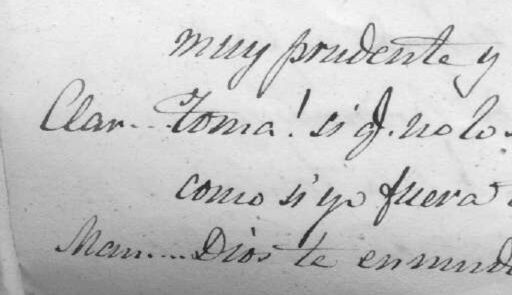 muy prudente y
Clar.. Toma! si q. no lo
como si yo fuera
Man.... Dios te enmud